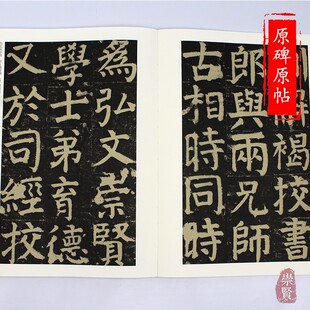 解褐挍書
郎與兩兄師
古相時同時
為弘文崇賢
學士弟育德
又於司經挍
原碑原帖
崇賢